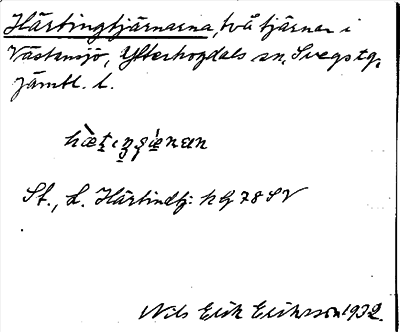 Härtingtjärnarna, två tjärnar i
Västansjö, Ytterhogdals sn, Svegs tg,
Jämtl. l.
St., L. Härtindtj: k bl 78 SV
Nils Erik Eriksson 1932.